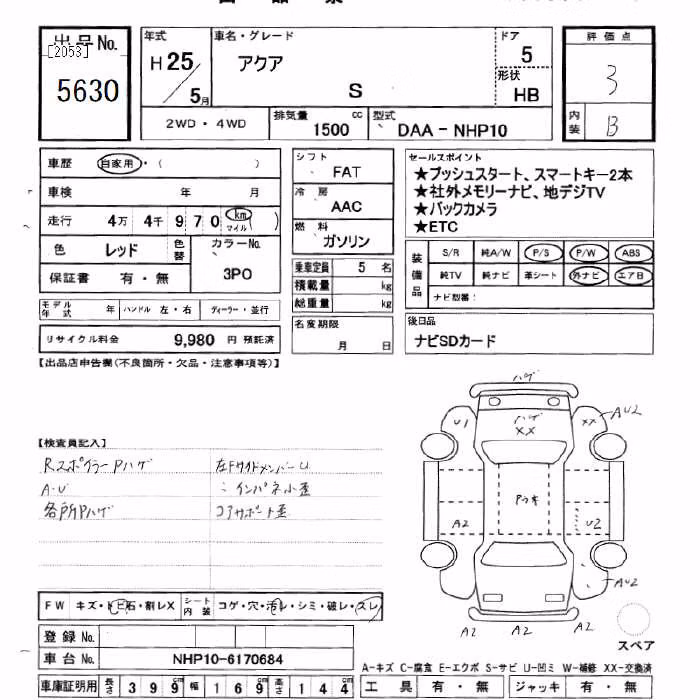 出品No.
[2053]
5630
年式
H 25 / 5月
車名・グレード
アクア
S
ドア
5
形状
HB
評価点
3
内装
B
2WD・4WD
排気量
1500 cc
型式
DAA-NHP10
車歴 自家用・( )
車検 年 月
走行 4万 4千 9 7 0 km マイル ( )
色 レッド 色替
カラーNo.
3P0
保証書 有・無
モデル年式 年 ハンドル 左・右 ディーラー・並行
リサイクル料金 9,980 円 預託済
シフト
FAT
冷房
AAC
燃料
ガソリン
乗車定員 5 名
積載量 kg
総重量 kg
名変期限
月 日
セールスポイント
★プッシュスタート、スマートキー2本
★社外メモリーナビ、地デジTV
★バックカメラ
★ETC
装備品
S/R 純A/W P/S P/W ABS
純TV 純ナビ 革シート 外ナビ エアB
ナビ型番:
後日品
ナビSDカード
【出品店申告欄(不良箇所・欠品・注意事項等)】
【検査員記入】
RスポイラーPハゲ
A・U
各所Pハゲ
左FサイドメンバーU
〃インパネ小歪
コアサポート歪
ハゲ
U1
ハゲ
XX
XX
AU2
Pラキ
A2
U2
AU2
A2 A2 A2
スペア
FW キズ・トビ石・割レX
シート内装 コゲ・穴・汚レ・シミ・破レ・スレ
登録No.
車台No. NHP10-6170684
車庫証明用 長さ 399cm 幅 169cm 高さ 144cm
A-キズ C-腐食 E-エクボ S-サビ U-凹ミ W-補修 XX-交換済
工具 有・無 ジャッキ 有・無